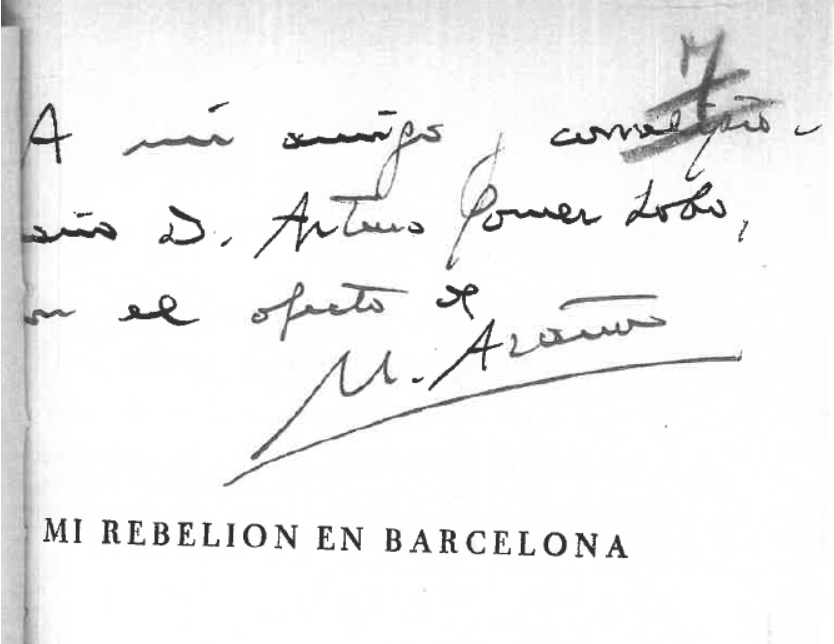 7
A mi amigo y correligio-
nario D. Arturo Gomez Lobo,
con el afecto de
M. Azaña
MI REBELION EN BARCELONA